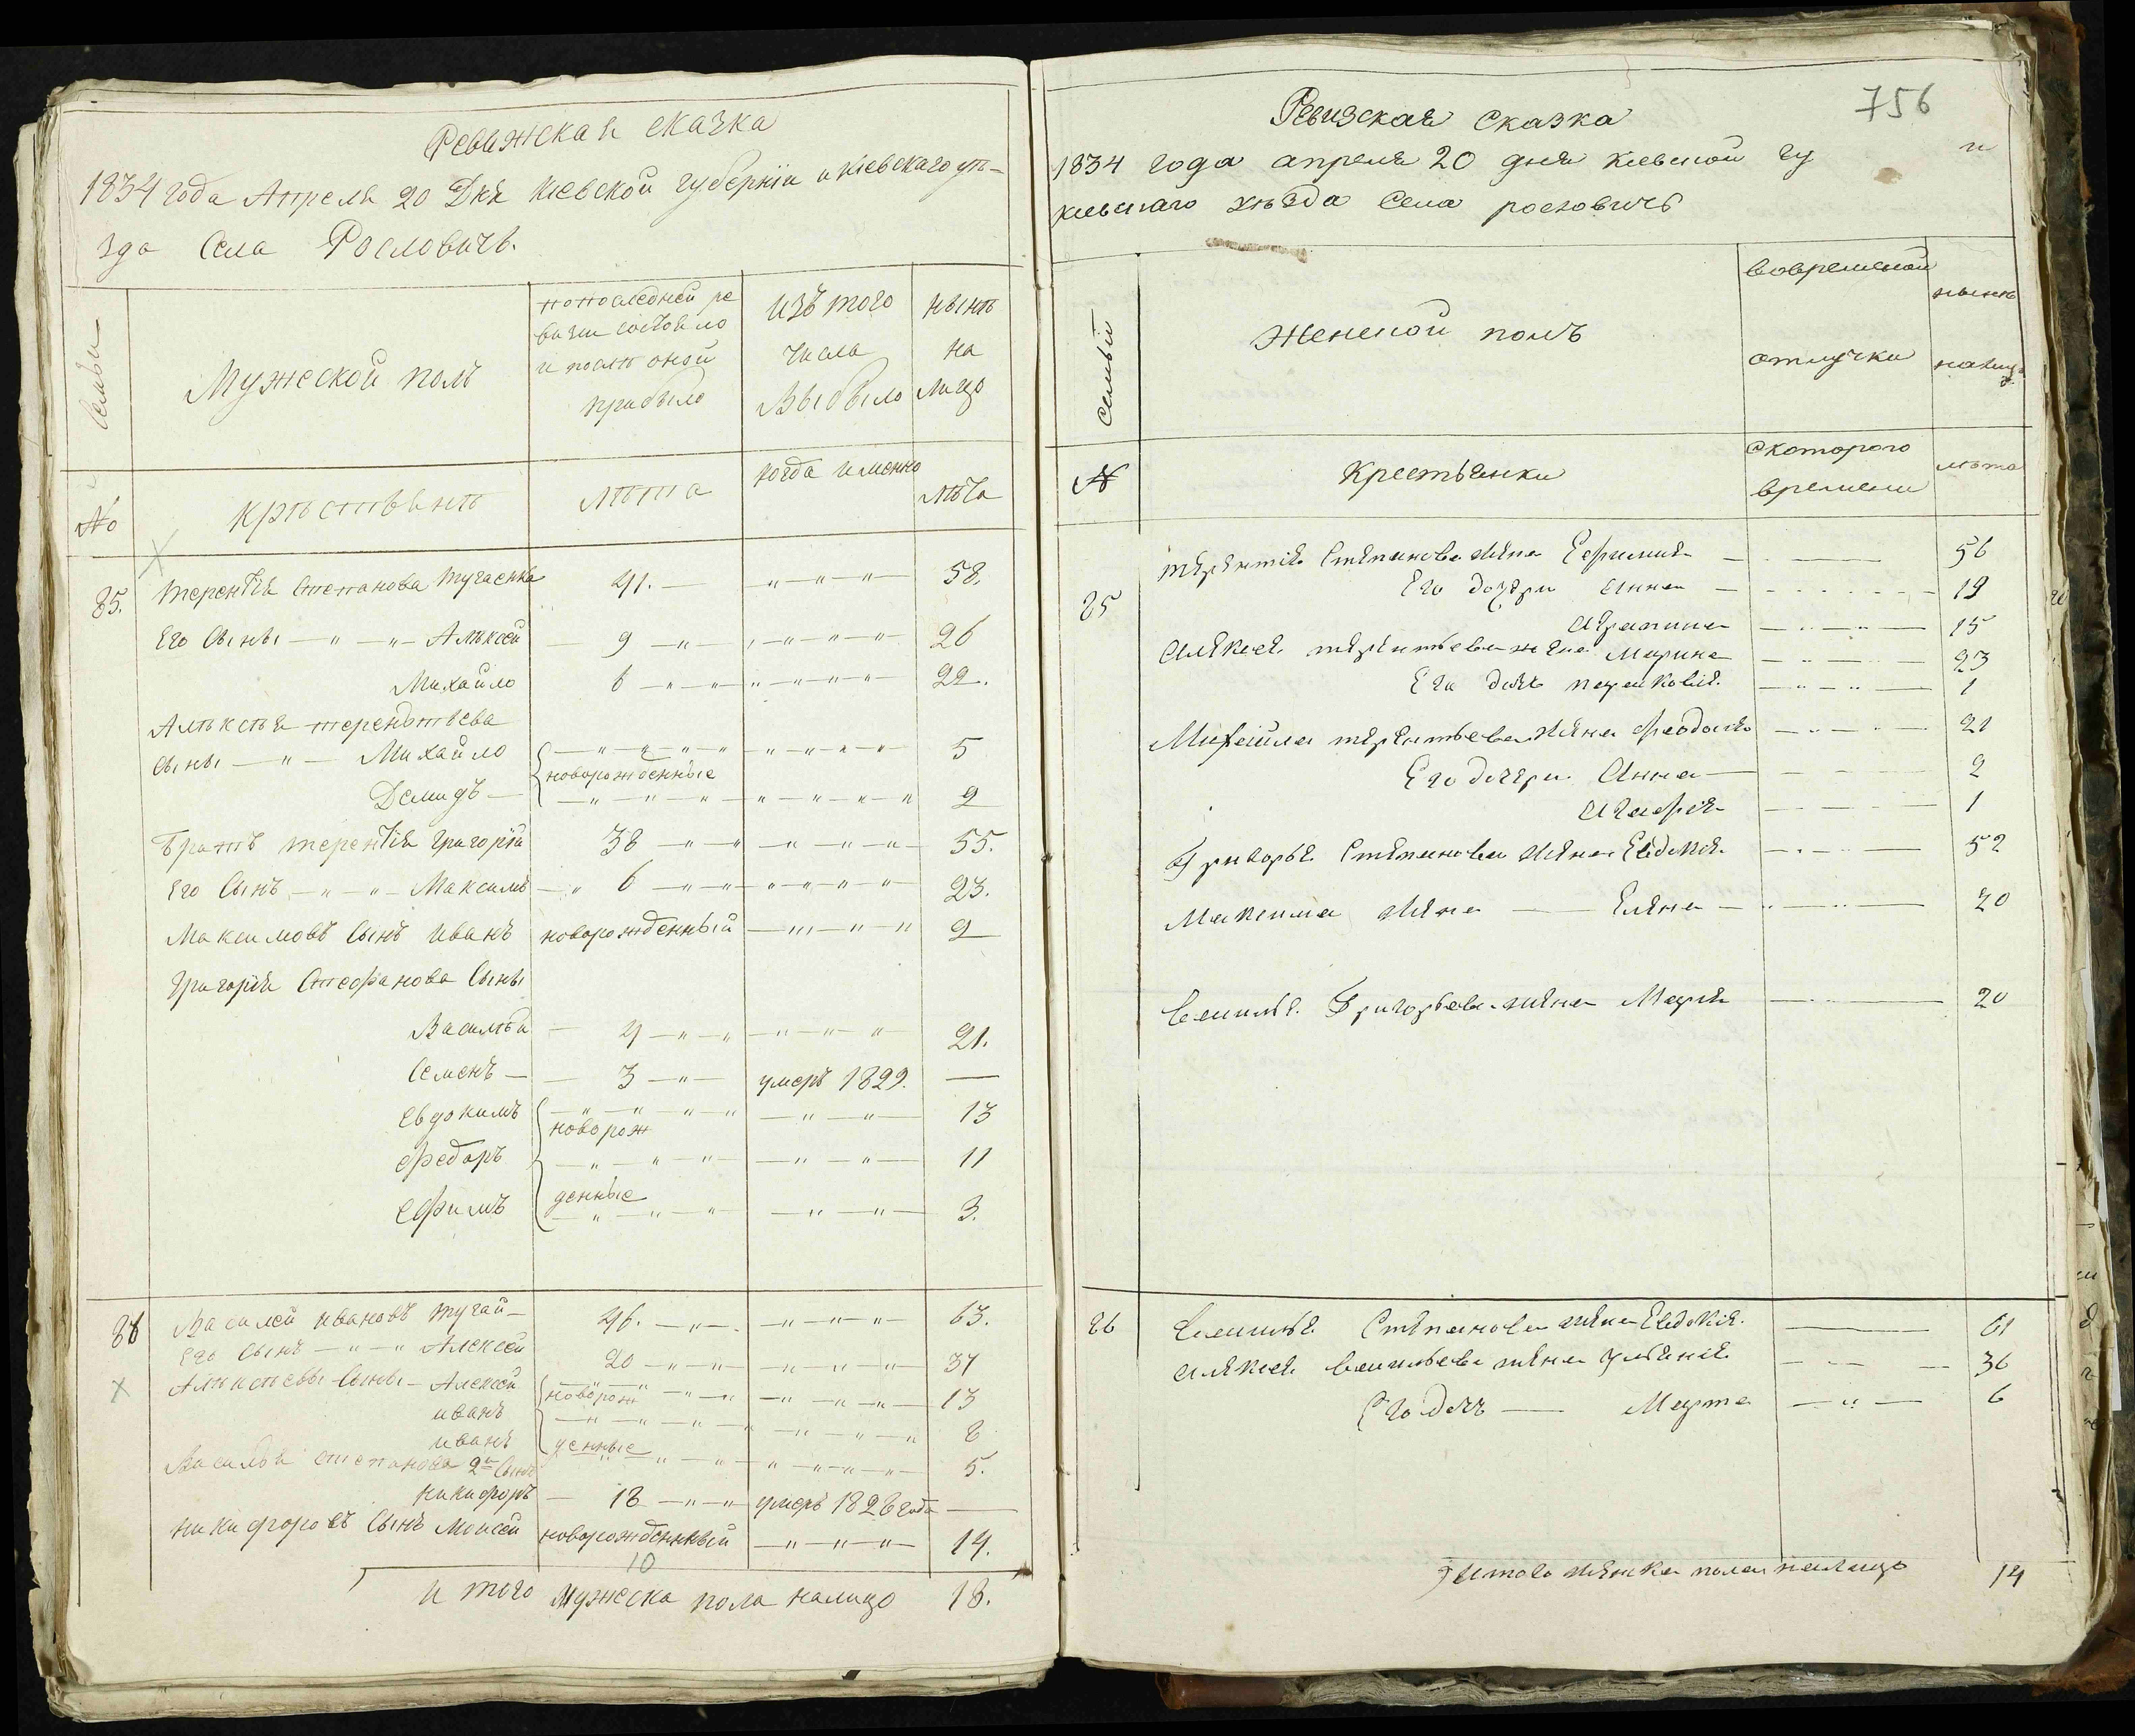 Ревижская сказка
1834 года Апреля 20 Дня Киевской губернiи и Кiевского уѣ-
зда Села Рословичъ.
Семьи
Мужеской полъ
попоследней ре
визи состояло
и послѣ оной
прибыло
изъ того
числа
Выбыло
нынѣ
на
лицо
№
крѣстьянѣ
лѣта
когда именно
лѣта
85. Терентiя Степанова Тугаенка 41. — " — " — " — 58.
Его Сыны — " — " — Алѣксей — 9 — " — " — " — " — 26
Михайло 6 — " — " — " — " — 22.
Алѣксѣя терендтьева
сыны — " — Михайло — " — " — " — " — 5
новорожденные
Демидъ — " — " — " — " — 2
Братъ терентiя григорiй 38 — " — " — " — " — 55.
Его Сынъ — " — " — Максимъ — " 6 — " — " — " — " — 23.
Максимовъ Сынъ Иванъ новорожденный — " — " — " 2
Григорiя Стефанова Сыны
Василѣй — 4 — " — " — " — " — " 21.
Семенъ — 3 — " — умеръ 1829. —
Евдокимъ — " — " — " — " — " — " — 13
новорож
Федоръ — " — " — " — " — " — 11
денные
Ефимъ — " — " — " — " — " — 3.
86 Василей ивановъ тугай — 46. — " — . — " — " — " — 63.
Его Сынъ — " — " Алексей 20 — " — " — " — " — " 37
Алѣксѣевы Сыны — Алексей новорож — " — " — " — " — " — 13
иванъ — " — " — " — " — " — " 8
иванъ денные — " — " — " — " — " — 5.
Василья степанова 2й Сынъ
никифоръ — 18 — " — " умеръ 1826 года —
никифоровъ Сынъ Моисей новорожденный — " — " — " — 14.
10
и того Мужеска пола налицо 18.
756
Ревизская Сказка
1834 года апреля 20 дня киевской гу и
киевскаго уѣзда Села рословичъ
Семьи
Женской полъ
вовременой
отлучки
нынѣ
налицо
№
Крестьянки
Скоторого
времени
лѣта
25 терентiя Степанова жена Ефимия — 56
Его дочери Анна — 19
15
Алексея терентьева жена Марина — 23
Его дочь — 1
Михайла терентьева жена Феодосiя — 21
Его дочери Анна — 2
Агафiя — 1
Григорья Степанова жена Евдокiя — 52
Максима жена — Елена — 20
Василья Григорьева жена Мария — 20
26 Василья Степанова жена Евдокiя — 61
Алексея Васильева жена Ульянiя — 36
Его дочь — Марта — 6
Итого женска пола налицо 14